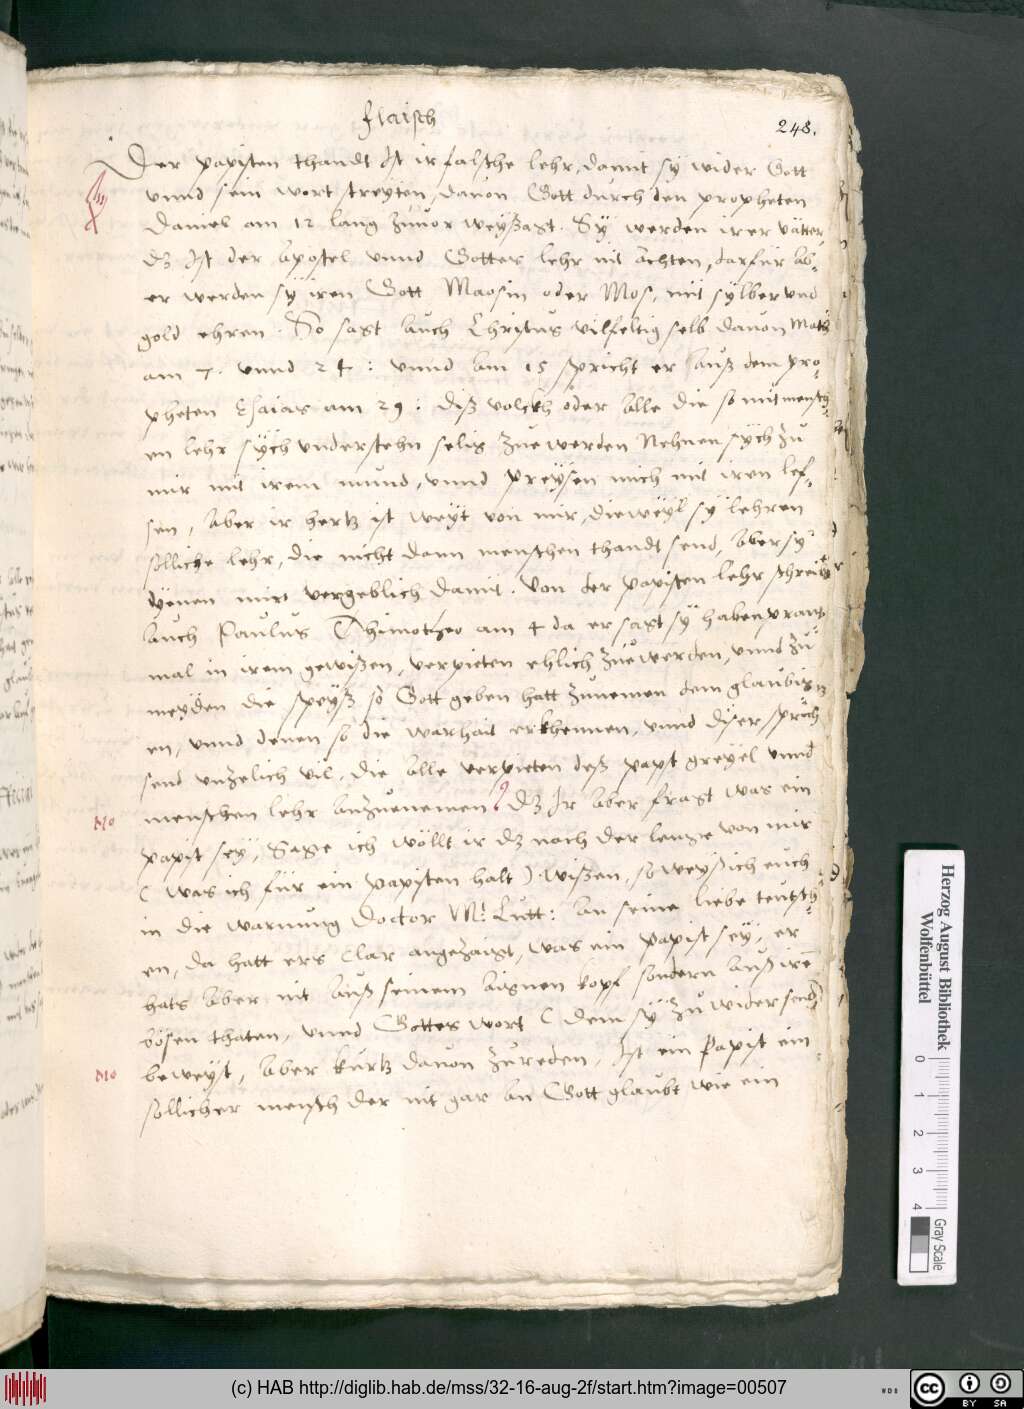 flaisch
248.
Der papisten thandt Ist ir falsche lehr, damit sy wider Gott
vnnd sein wort streyten, dauon Gott durch den propheten
Daniel am 12 lang zuuor weyßagt. Sy werden irer vätter
dz Ist der Apostel vnnd Gottes lehr nit achten, darfür ab-
er werden sy iren Gott Maosin oder Mos, mit sylber vnd
gold ehren. So sagt auch Christus vilfeltig selb dauon Math
am 7. vnnd 24: vnnd am 15 spricht er auß dem pro-
pheten Esaias am 29: diß volckh oder alle die so mit mensch-
en lehr sych vnderstehn selig zue werden Nehnen sych zu
mir mit irem mund, vnnd preysen mich mit iren lef-
sen, Aber ir hertz ist weyt von mir, dieweyl sy lehren
solliche lehr, die nicht dann menschen thandt send, Aber sy
dyenen mir vergeblich damit. Von der papisten lehr schreibt
auch Paulus Thimotheo am 4 da er sagt sy haben prant
mal in irem gewißen, verpieten ehlich zue werden, vnnd zu
meyden die speyß so Gott geben hatt zunemen dem glaubig
en, vnnd denen so die warhait erkhennen, vnnd diser sprüch
send vnzelich vil, die alle verpieten deß papst greyel vnnd
menschen lehr anzuenemen. dz Ir aber fragt was ein
No
papist sey, Sage ich wöllt ir dz nach der lenge von mir
( was ich für ein papisten halt ) wißen, so weyß ich euch
in die warnung Doctor M. Lutt: an seine liebe teutsch-
en, da hatt ers Clar angezaigt, was ein papist sey, er
hats aber nit auß seinem aignen kopf sondern auß iren
bösen thaten, vnnd Gottes wort ( dem sy zu wider send )
beweyst, Aber kurtz dauon zureden, Ist ein Papist ein
No
sollicher mensch der nit gar an Gott glaubt wie ein
Herzog August Bibliothek
Wolfenbüttel
0 1 2 3 4
Gray Scale
(c) HAB http://diglib.hab.de/mss/32-16-aug-2f/start.htm?image=00507
WDB
cc BY SA